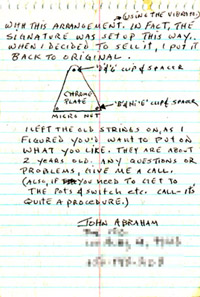 (USING THE VIBRATO)
WITH THIS ARRANGEMENT. IN FACT, THE
SIGNATURE WAS SET UP THIS WAY.
WHEN I DECIDED TO SELL IT, I PUT IT
BACK TO ORIGINAL.
CUP & SPACER
CHROME
PLATE
"E" CUP & SPACER
MICRO NUT
I LEFT THE OLD STRINGS ON, AS I
FIGURED YOU'D WANT TO PUT ON
WHAT YOU LIKE. THEY ARE ABOUT
2 YEARS OLD. ANY QUESTIONS OR
PROBLEMS, GIVE ME A CALL.
(ALSO, IF YOU NEED TO GET TO
THE POTS & SWITCH ETC. CALL - IT'S
QUITE A PROCEDURE.)
JOHN ABRAHAM